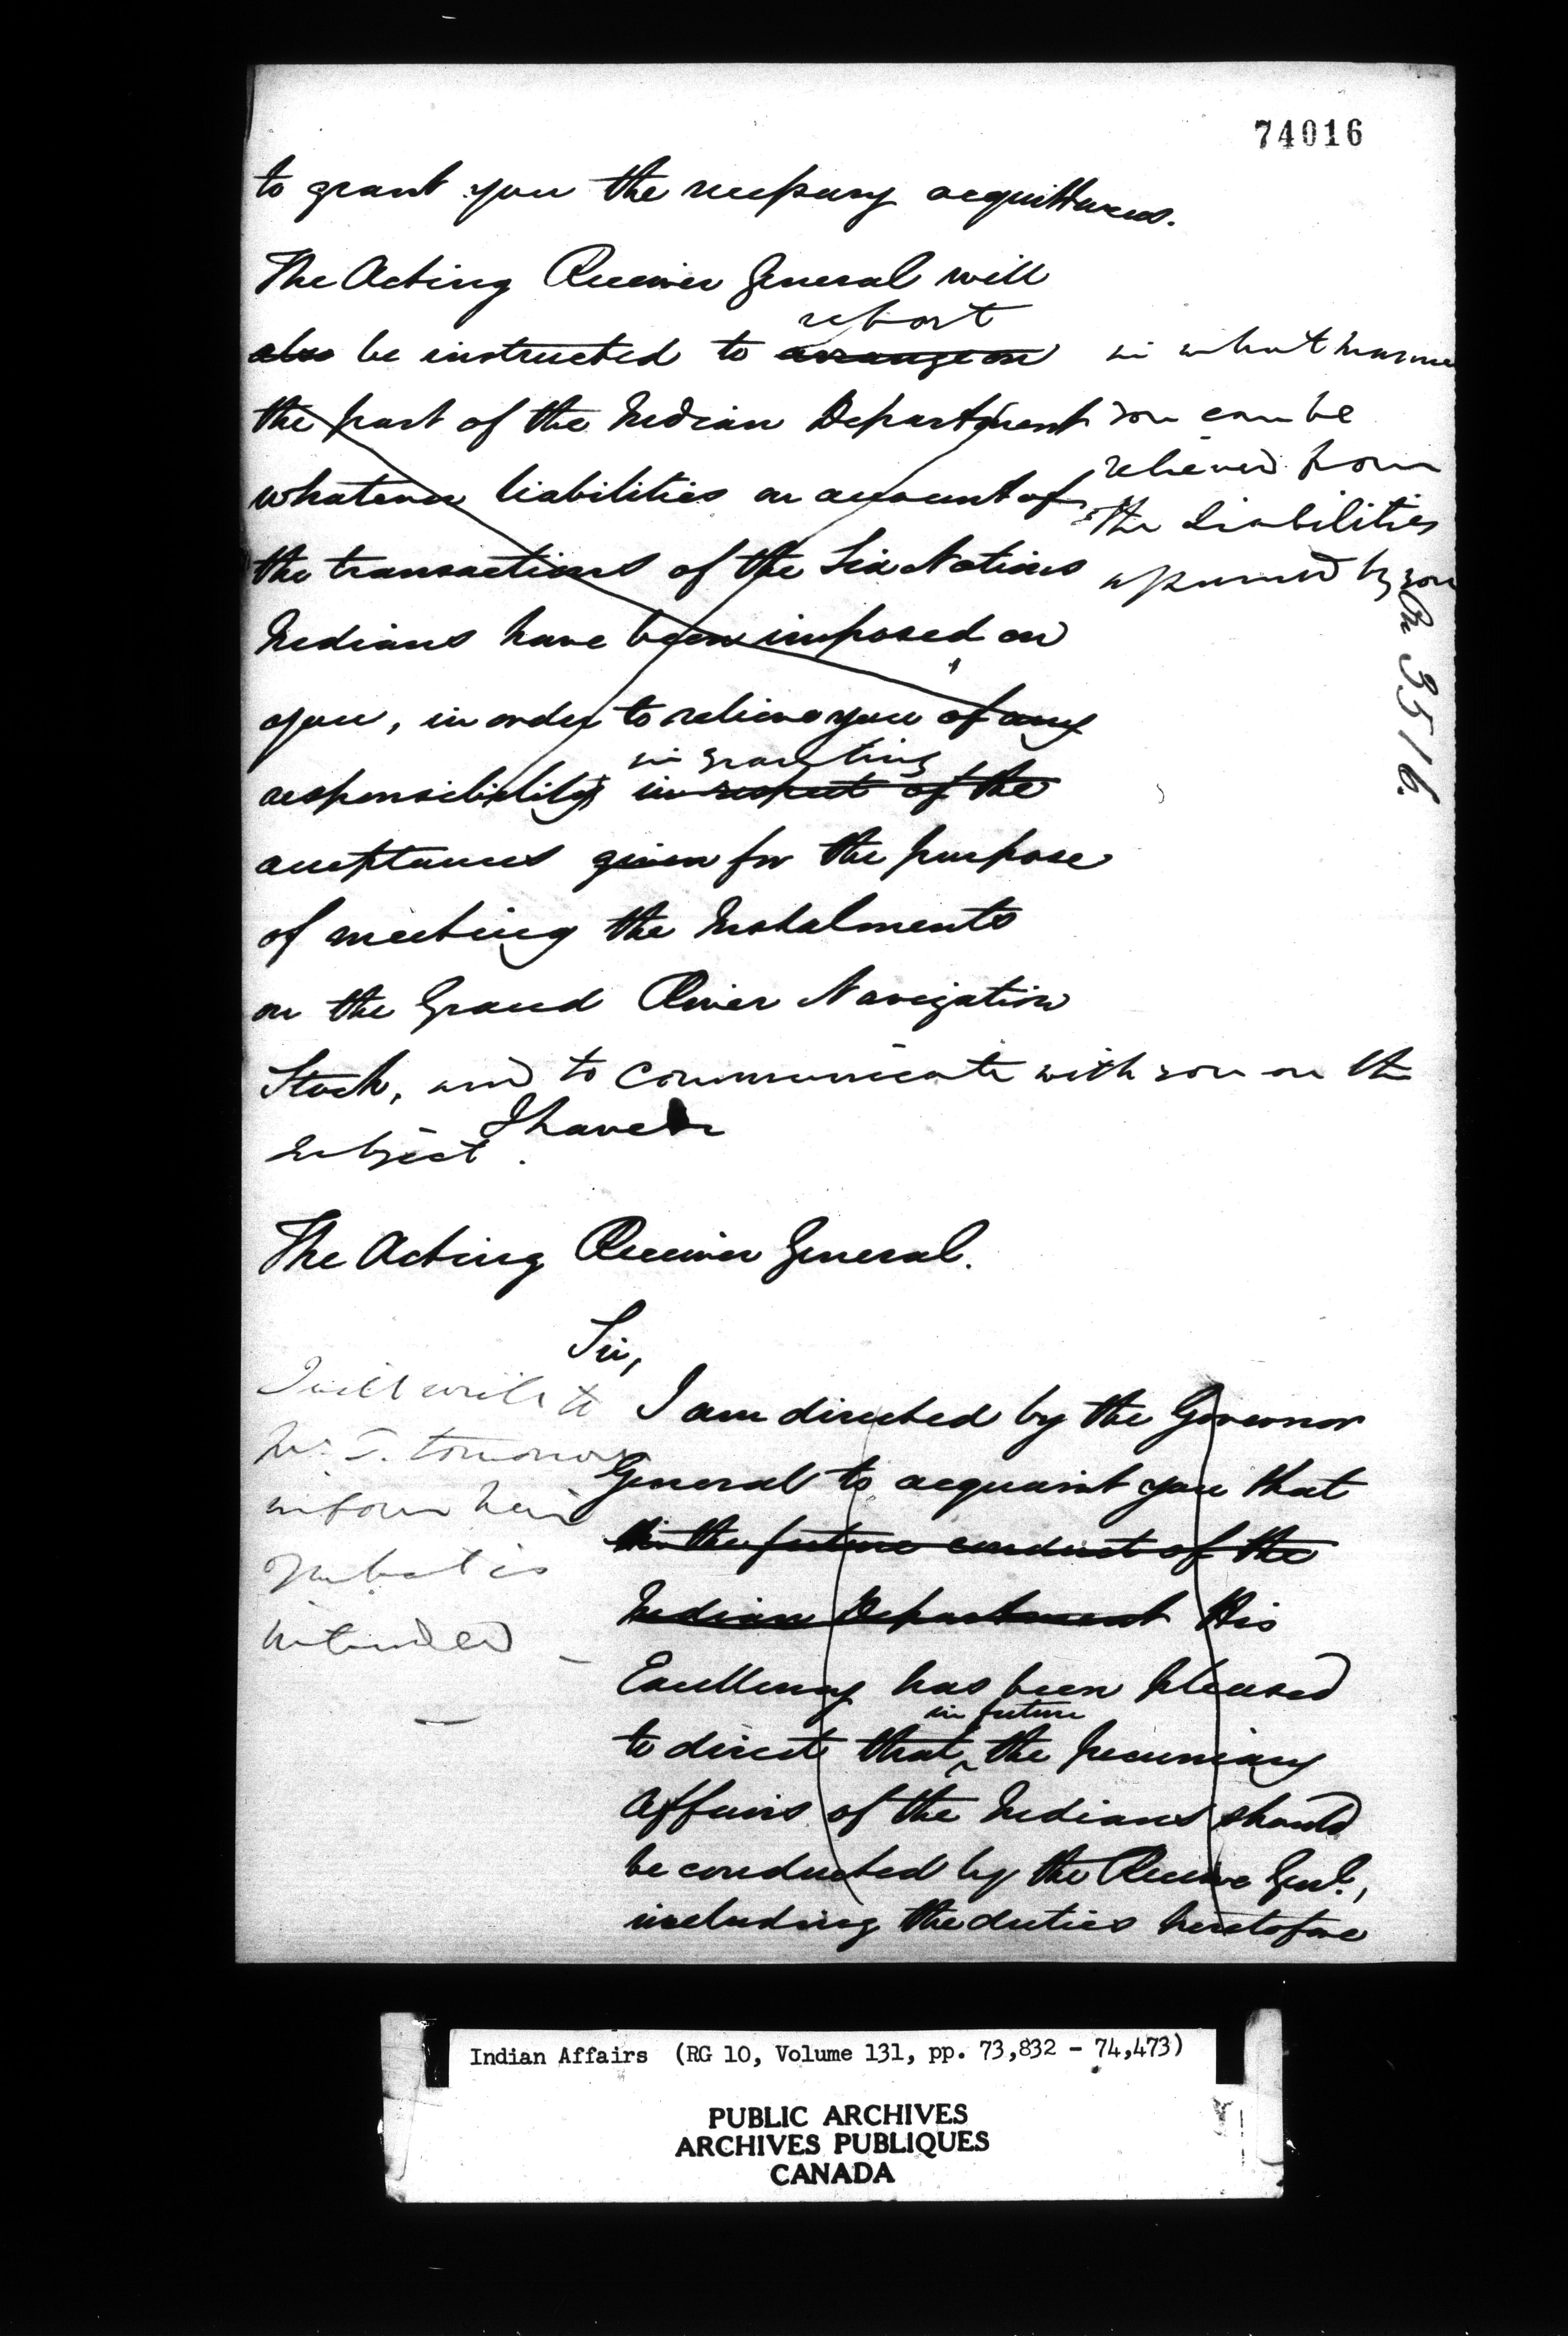 74016
to grant you the necessary acquittances.
The Acting Receiver General will
report
also be instructed to arrange on
in what manner
the part of the Indian Department
you can be
relieved from
whatever liabilities on account of
the Liabilities
the transactions of the Six Nations
assumed by you
Indians have been imposed on
3516.
you, in order to relieve you of any
in granting
responsibility in respect of the
acceptances given for the purpose
of meeting the Instalments
on the Grand River Navigation
Stock, and to communicate with you on the
I have &c
subject.
The Acting Receiver General.
Sir,
I will write to
I am directed by the Governor
Mr. T. tomorrow
General to acquaint you that
inform him
in the future conduct of the
what is
Indian Department His
intended —
Excellency has been pleased
in future
to direct that ^ the pecuniary
Affairs of the Indians should
be conducted by the Receiver Genl.,
including the duties heretofore
Indian Affairs (RG 10, Volume 131, pp. 73,832 - 74,473)
PUBLIC ARCHIVES
ARCHIVES PUBLIQUES
CANADA